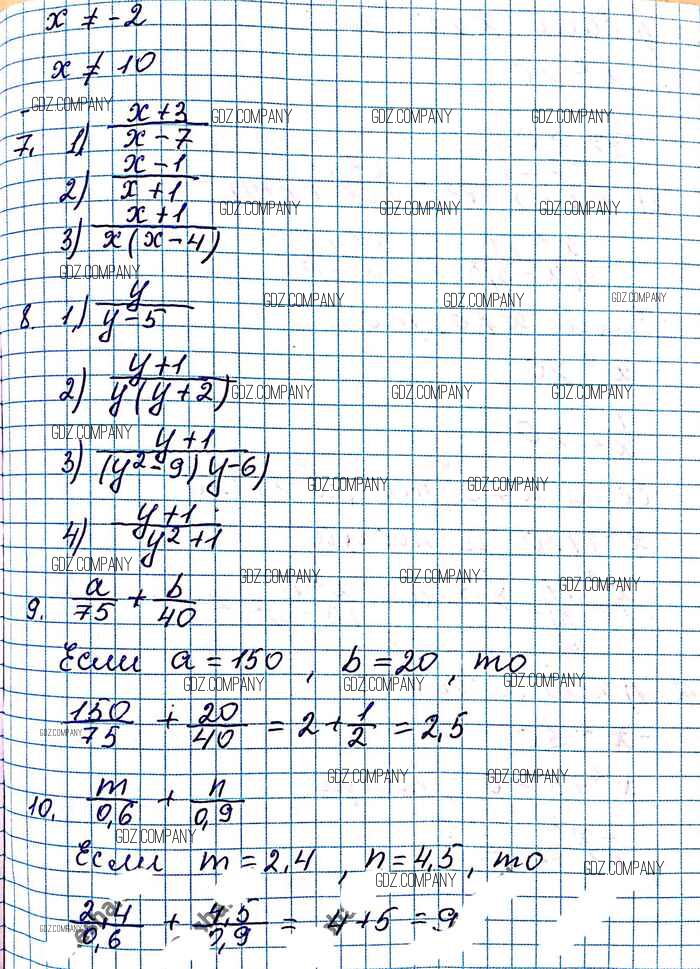 x ≠ -2
x ≠ 10
GDZ.COMPANY GDZ.COMPANY GDZ.COMPANY GDZ.COMPANY
7. 1) (x+3)/(x-7)
2) (x-1)/(x+1)
GDZ.COMPANY GDZ.COMPANY GDZ.COMPANY
3) (x+1)/(x(x-4))
GDZ.COMPANY GDZ.COMPANY GDZ.COMPANY GDZ.COMPANY
8. 1) y/(y-5)
2) (y+1)/(y(y+2))
GDZ.COMPANY GDZ.COMPANY GDZ.COMPANY
GDZ.COMPANY
3) (y+1)/((y²-9)y-6)
GDZ.COMPANY GDZ.COMPANY
4) (y+1)/(y²+1)
GDZ.COMPANY GDZ.COMPANY GDZ.COMPANY GDZ.COMPANY
9. a/75 + b/40
Если a=150, b=20, то
GDZ.COMPANY GDZ.COMPANY GDZ.COMPANY
150/75 + 20/40 = 2+1/2 = 2,5
GDZ.COMPANY
GDZ.COMPANY GDZ.COMPANY
10. m/0,6 + n/0,9
GDZ.COMPANY
Если m=2,4, n=4,5, то
GDZ.COMPANY GDZ.COMPANY
2,4/0,6 + 4,5/0,9 = 4+5=9
GDZ.COMPANY